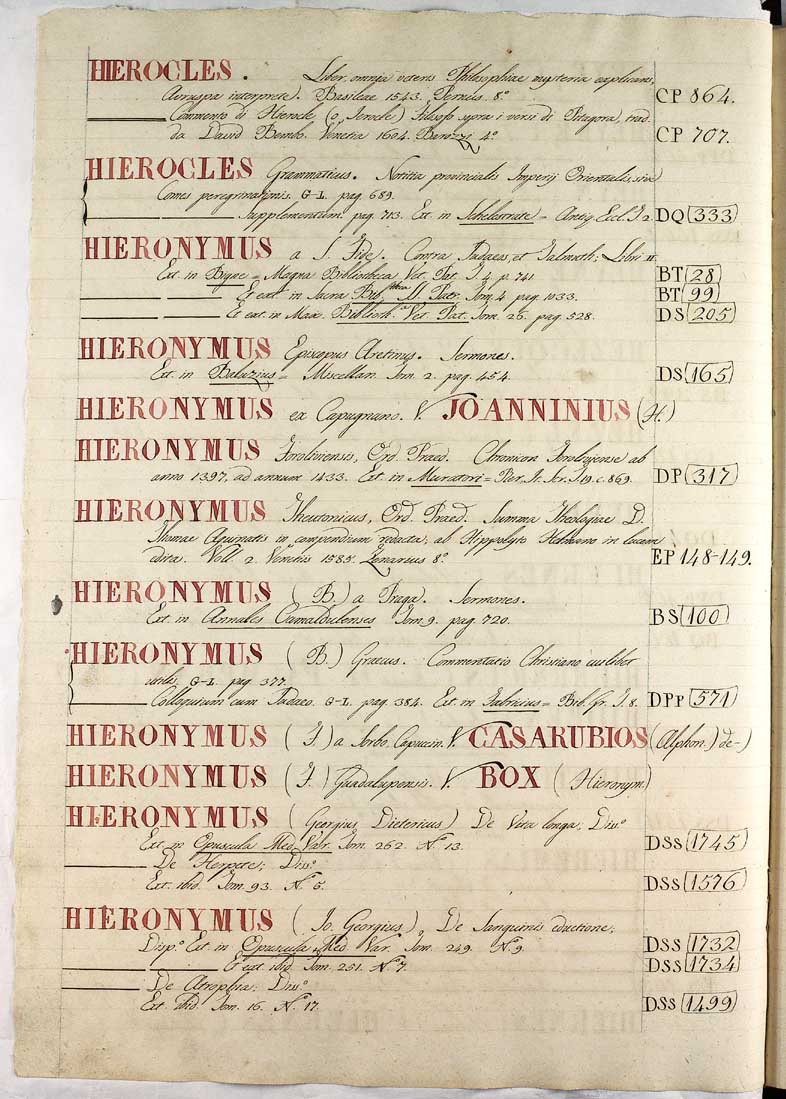 HIEROCLES. Liber omnia veteris Philosophiae mysteria explicans,
Aurispa interprete. Basileae 1543. Pernius. 8.° CP 864.
——— Commento di Hierocle (o, Jerocle) Filosofo sopra i versi di Pitagora, trad.
da David Bomb. Venetia 1604. Barezzi 4.° CP 707.
HIEROCLES Grammaticus. Notitia provincialis Imperij Orientalis, sive
Comes peregrinationis. G-L. pag. 689.
——— ——— Supplementum. pag. 713. Ext. in Schelestrate = Antiq. Eccl. T. 2. DQ 333
HIERONYMUS a S. Fide. Contra Judaeos, et Talmuth; Libri II.
Ext. in Bigne = Magna Bibliotheca Vet. Pat. T. 4. p. 741 BT 28
——— ——— Et ext. in Sacra Bibliotheca SS. Patr. Tom. 4. pag. 1033. BT 99
——— ——— Et ext. in Max. Biblioth.ᵃ Vet. Pat. Tom. 26. pag. 528. DS 205
HIERONYMUS Episcopus Aretinus. Sermones.
Ext. in Baluzius = Miscellan. Tom. 2. pag. 454. DS 165
HIERONYMUS ex Capugnano. V. JOANNINIUS (H.)
HIERONYMUS Foroliviensis, Ord. Praed. Chronicon Foroliviense ab
anno 1397, ad annum 1433. Ext. in Muratori = Rer. It. Scr. T. 19. c. 869. DP 317
HIERONYMUS Theutonicus, Ord. Praed. Summa Theologiae D.
Thomae Aquinatis in compendium redacta; ab Hippolyto in lucem
edita. Voll. 2. Venetiis 1585. Zenarius 8.° EP 148-149.
HIERONYMUS (B.) a Praga. Sermones.
Ext. in Annales Camaldulenses Tom. 9. pag. 720. BS 100
HIERONYMUS (B.) Graecus. Commentatio Christiano cuilibet
utilis. G-L. pag. 377.
——— Colloquium cum Judaeo. G-L. pag. 384. Ext. in Fabricius = Bib. Gr. T. 8. DPP 571
HIERONYMUS (F.) a Sorbo, Capuccin. V. CASARUBIOS (Alphon.) de-)
HIERONYMUS (F.) Guadalupensis. V. BOX (Hieronym.)
HIERONYMUS (Georgius Dietericus) De Vita longa; Diss.°
Ext. in Opuscula Med. Var. Tom. 262. N.° 13. DSS 1745
——— De Herpete; Diss.°
Ext. ibid. Tom. 93. N.° 6. DSS 1576
HIERONYMUS (Jo. Georgius) De Sanguinis eductione;
Disp.° Ext. in Opuscula Med. Var. Tom. 249. N.° 9. DSS 1732
——— ——— Et ext. ibid. Tom. 251. N.° 7. DSS 1734
——— De Atrophia; Diss.°
Ext. ibid. Tom. 16. N.° 17. DSS 1499